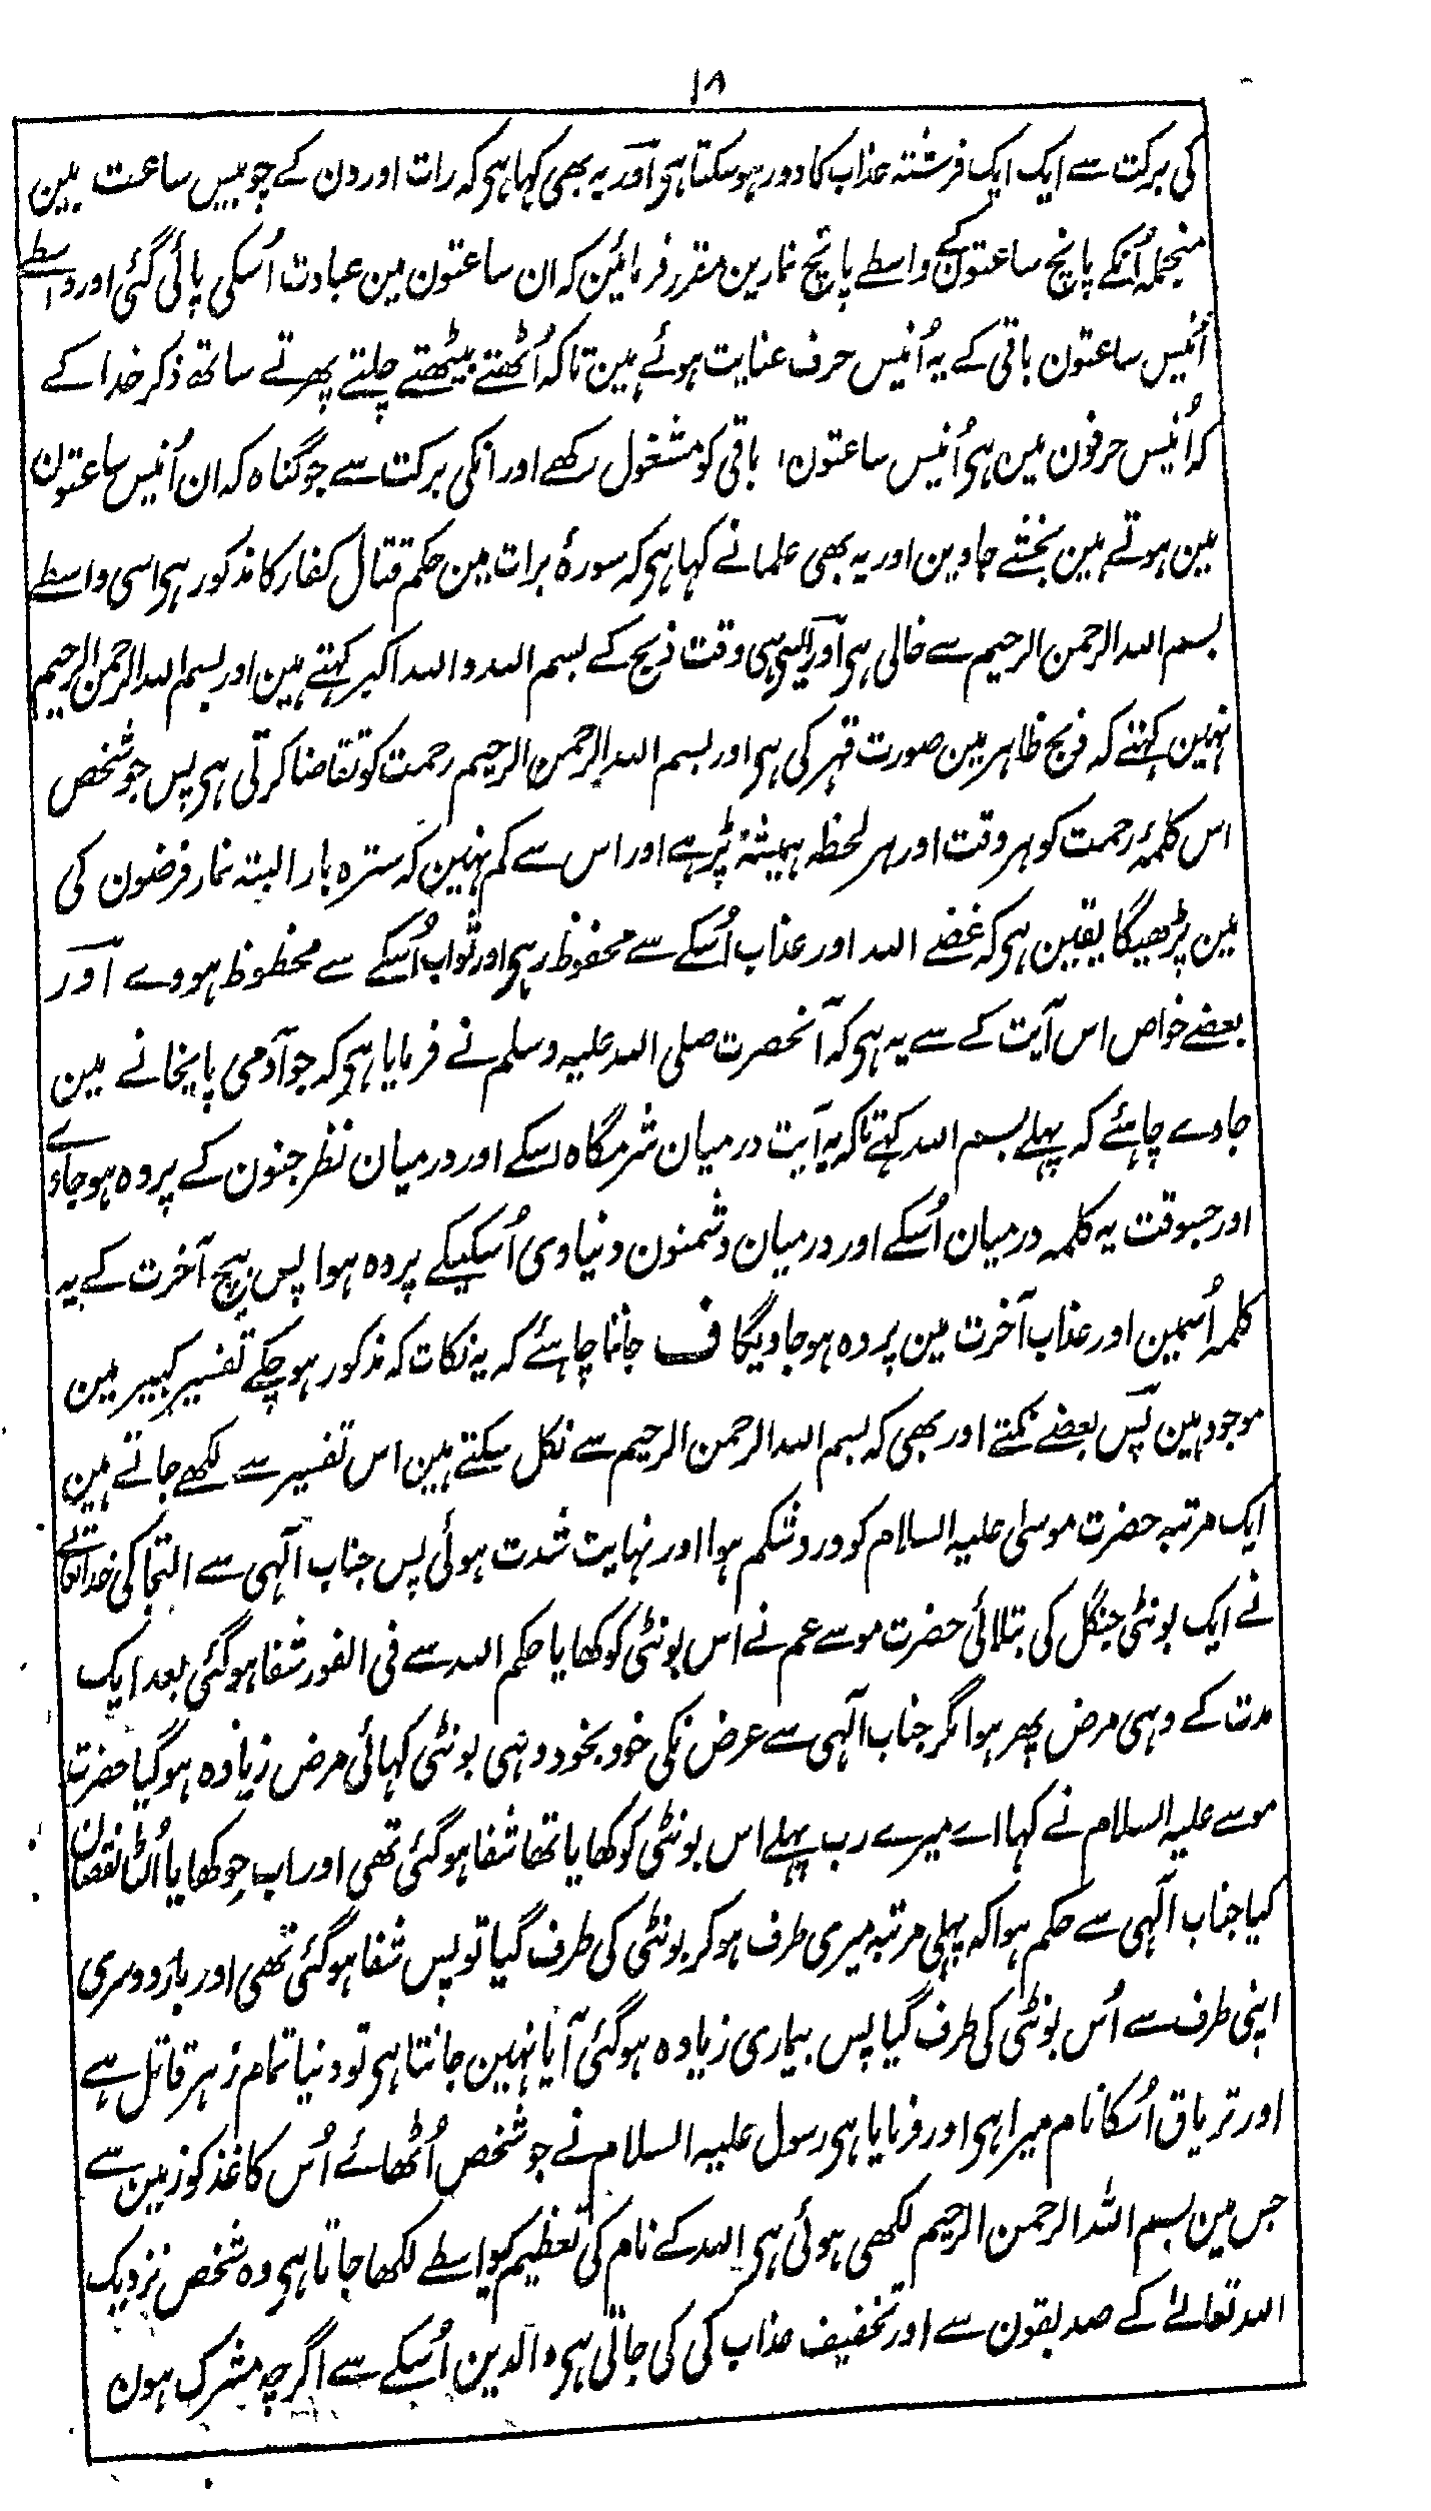 ۱۸
کی برکت سے ایک ایک فرشتہ عذاب کا دور ہوسکتا ہی اور یہ بھی کہا ہی کہ رات اور دن کے چوبیس ساعت مین
منجملہ اُنکے پانچ ساعتون کے واسطے پانچ نمازین مقرر فرمائین کہ ان ساعتون مین عبادت اُسکی پائی گئی اور واسطے
اُنیس ساعتون باقی کے یہ اُنیس حرف عنایت ہوئے ہین تاکہ اُٹھتے بیٹھتے چلتے پھرتے ساتھ ذکر خدا کے
کہ اُنیس حرفون مین ہی اُنیس ساعتون باقی کو مشغول رکھے اور انکی برکت سے جو گناہ کہ ان اُنیس ساعتون
مین ہوتے ہین بخشے جاوین اور یہ بھی علما نے کہا ہی کہ سورۂ برات مین حکم قتال کفار کا مذکور ہی اسی واسطے
بسم اللہ الرحمن الرحیم سے خالی ہی اور ایسی ہی وقت ذبح کے بسم اللہ واللہ اکبر کہتے ہین اور بسم اللہ الرحمن الرحیم
نہین کہتے کہ ذبح ظاہر مین صورت قہر کی ہی اور بسم اللہ الرحمن الرحیم رحمت کو تقاضا کرتی ہی پس جو شخص
اس کلمۂ رحمت کو ہر وقت اور ہر لحظہ ہمیشہ پڑہے اور اس سے کم نہین کہ سترہ بار البتہ نماز فرضون کی
مین پڑھیگا یقین ہی کہ غضب اللہ اور عذاب اُسکے سے محفوظ رہی اور ثواب اُسکے سے محظوظ ہووے اور
بعضے خواص اس آیت کے سے یہ ہی کہ آنحضرت صلی اللہ علیہ وسلم نے فرمایا ہی کہ جو آدمی پایخانے مین
جاوے چاہئے کہ پہلے بسم اللہ کہے تاکہ یہ آیت درمیان شرمگاہ اسکے اور درمیان نظر جنون کے پردہ ہوجاوے
اور جسوقت یہ کلمہ درمیان اُسکے اور درمیان دشمنون دنیاوی اُسکیکے پردہ ہوا پس بیچ آخرت کے یہ
کلمہ اُسمین اور عذاب آخرت مین پردہ ہوجاویگا ف جاننا چاہئے کہ یہ نکات کہ مذکور ہوچکے تفسیر کبیر مین
موجود ہین پس بعضے نکتے اور بھی کہ بسم اللہ الرحمن الرحیم سے نکل سکتے ہین اس تفسیر سے لکھے جاتے ہین
ایک مرتبہ حضرت موسیٰ علیہ السلام کو درد شکم ہوا اور نہایت شدت ہوئی پس جناب الٰہی سے التجا کی خدا تعالے
نے ایک بونٹی جنگل کی بتلائی حضرت موسے عم نے اس بونٹی کو کھایا حکم اللہ سے فی الفور شفا ہوگئی بعد ایک
مدت کے وہی مرض پھر ہوا مگر جناب الٰہی سے عرض نکی خود بخود وہی بونٹی کہائی مرض زیادہ ہوگیا حضرت
موسے علیہ السلام نے کہا اے میرے رب پہلے اس بونٹی کو کھایا تھا شفا ہوگئی تھی اور اب جو کھایا اُلٹا نقصان
کیا جناب الٰہی سے حکم ہوا کہ پہلی مرتبہ میری طرف ہوکر بونٹی کی طرف گیا تو پس شفا ہوگئی تھی اور بار دوسری
اپنی طرف سے اُس بونٹی کی طرف گیا پس بیماری زیادہ ہوگئی آیا نہین جانتا ہی تو دنیا تمام زہر قاتل ہے
اور تریاق اُسکا نام میرا ہی اور فرمایا ہی رسول علیہ السلام نے جو شخص اُٹھائے اُس کاغذ کو زمین سے
جس مین بسم اللہ الرحمن الرحیم لکھی ہوئی ہی اللہ کے نام کی تعظیم کیواسطے لکھا جاتا ہی وہ شخص نزدیک
اللہ تعالےٰ کے صدیقون سے اور تخفیف عذاب کی کی جاتی ہی والدین اُسکے سے اگرچہ مشرک ہون